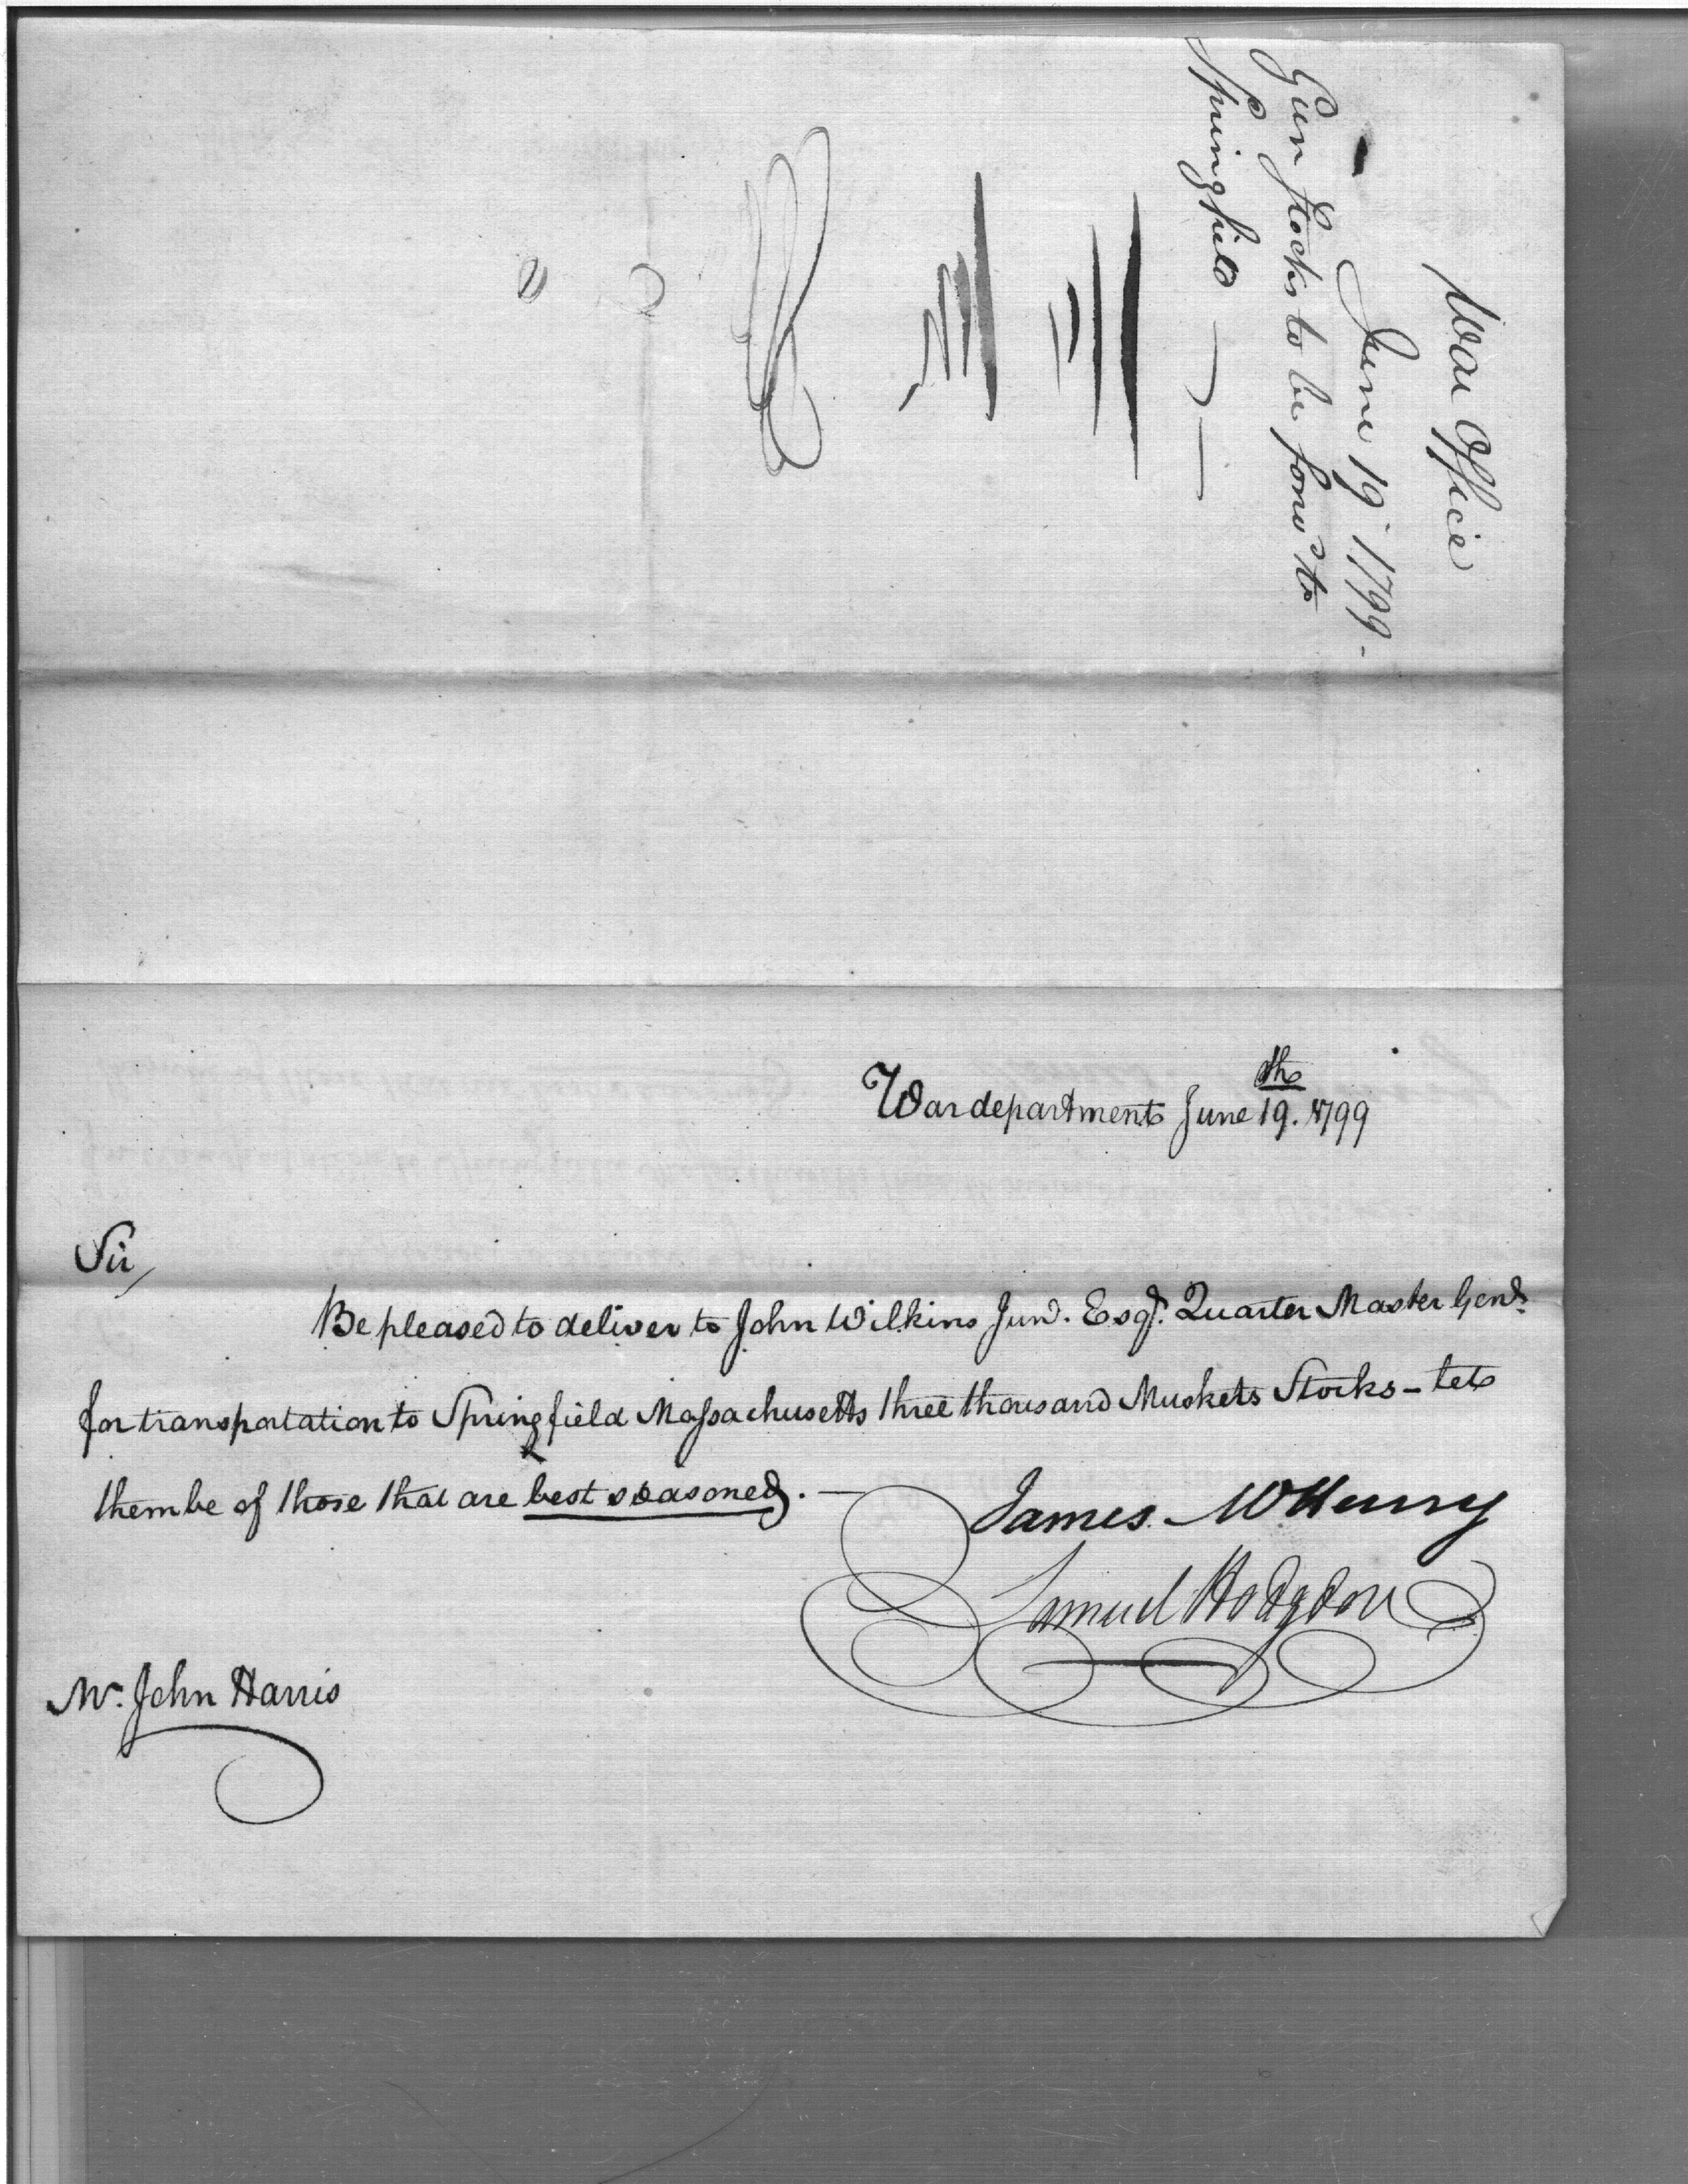 War Office
June 19 1799-
Gun Stocks to be forwd to
Springfield
War department June 19th. 1799
Sir,
Be pleased to deliver to John Wilkins Junr. Esqr. Quarter Master Genl.
for transportation to Springfield Massachusetts three thousand Muskets Stocks - let
them be of those that are best seasoned. —
James McHenry
Samuel Hodgdon
Mr. John Harris